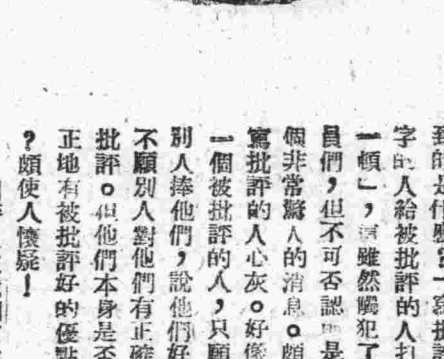 到的是什麼？一寫批評
字的人給被批評的人打
一頓」，這雖然觸犯了
員們，但不可否認也是
個非常驚人的消息。頗
寫批評的人心灰。好像
一個被批評的人，只願
別人捧他們，說他們好
不願別人對他們有正確
批評。但他們本身是否
正地有被批評好的優點
？頗使人懷疑！